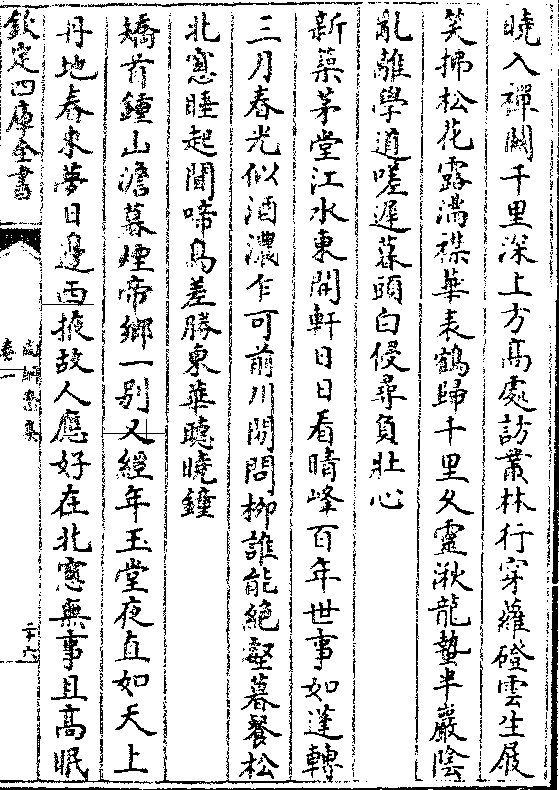 曉入禪關千里深上方高處訪叢林行穿蘿磴雲生屐
笑拂松花露滿襟華表鶴歸千里夂靈湫龍蟄半巖陰
亂離學道嗟遲莫頭白侵尋負壯心
新築茅堂江水東開軒日日看晴峰百年世事如蓬轉
三月春光似酒濃乍可前川閒問柳誰能絶壑暮餐松
北窻睡起聞啼鳥差勝東華聽曉鐘
矯首鍾山澹暮煙帝鄉一別又經年玉堂夜直如天上
丹地春來夢日邊西掖故人應好在北窻無事且高眠
欽定四庫全書
卷一
二十六